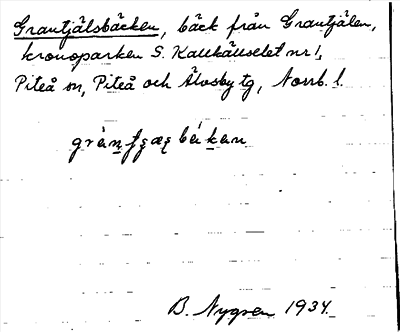 Grantjälsbäcken, bäck från Grantjälen,
kronoparken S. Kallkällselet nr 1,
Piteå sn, Piteå och Älvsby tg, Norrb. l.
B. Nygren 1934.